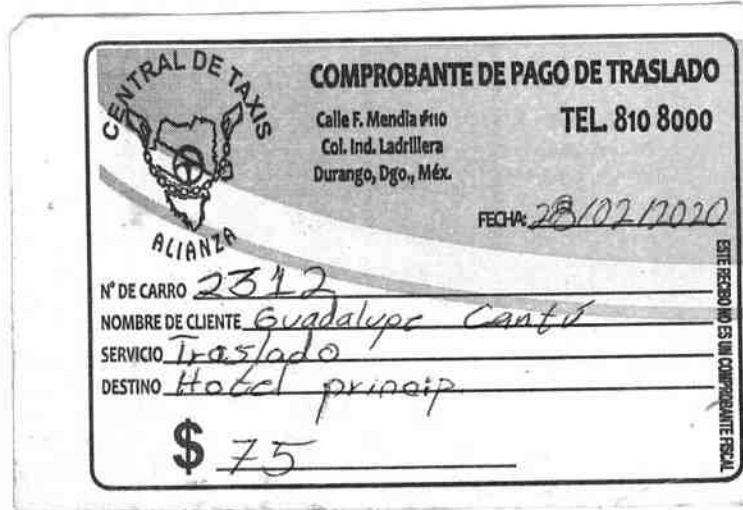 CENTRAL DE TAXIS
ALIANZA
COMPROBANTE DE PAGO DE TRASLADO
Calle F. Mendia #110
Col. Ind. Ladrillera
Durango, Dgo., Méx.
TEL. 810 8000
FECHA: 28/02/2020
N° DE CARRO 2312
NOMBRE DE CLIENTE Guadalupe Cantú
SERVICIO Traslado
DESTINO Hotel princip.
$ 75
ESTE RECIBO NO ES UN COMPROBANTE FISCAL